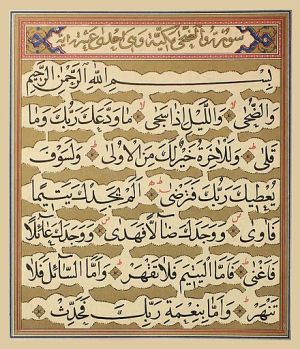 سورة والضحى مكية وهي احدى عشرة اية
بِسْمِ اللّٰهِ الرَّحْمٰنِ الرَّحِيمِ
وَالضُّحٰى وَاللَّيْلِ اِذَا سَجٰى مَا وَدَّعَكَ رَبُّكَ وَمَا
قَلٰى وَلَلْاٰخِرَةُ خَيْرٌ لَكَ مِنَ الْاُولٰى وَلَسَوْفَ
يُعْطِيكَ رَبُّكَ فَتَرْضٰى اَلَمْ يَجِدْكَ يَتِيمًا
فَاٰوٰى وَوَجَدَكَ ضَالًّا فَهَدٰى وَوَجَدَكَ عَائِلًا
فَاَغْنٰى فَاَمَّا الْيَتِيمَ فَلَا تَقْهَرْ وَاَمَّا السَّائِلَ فَلَا
تَنْهَرْ وَاَمَّا بِنِعْمَةِ رَبِّكَ فَحَدِّثْ